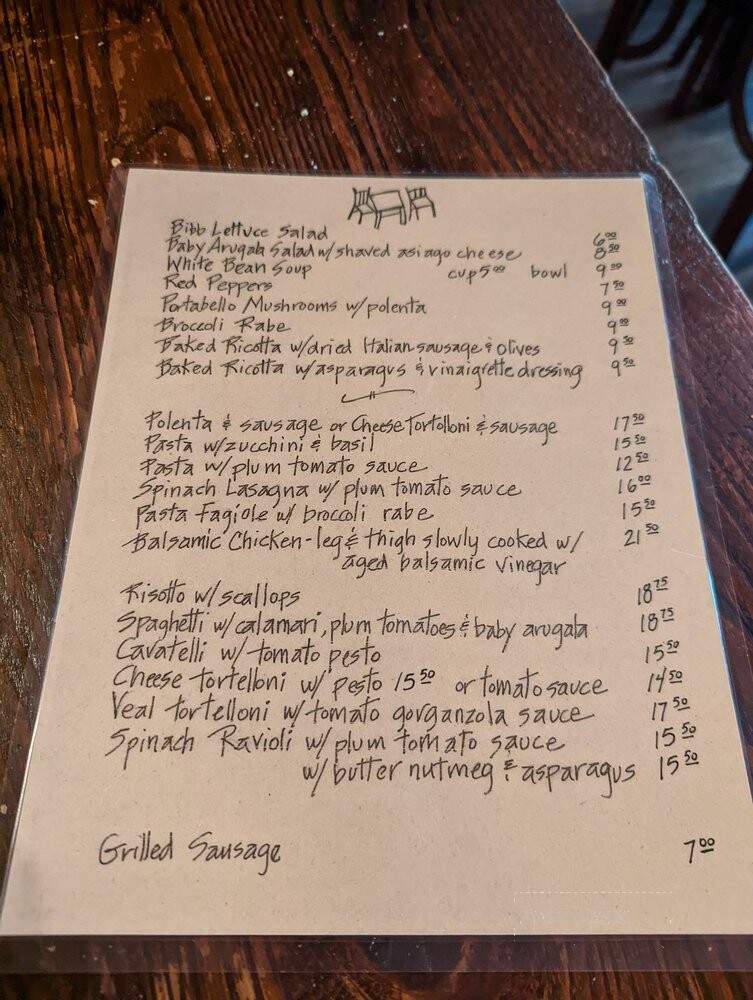 Bibb Lettuce Salad 6.00
Baby Arugala Salad w/shaved asiago cheese 8.50
White Bean Soup cup 5.00 bowl 9.00
Red Peppers 7.50
Portabello Mushrooms w/polenta 9.00
Broccoli Rabe 9.00
Baked Ricotta w/dried Italian sausage & olives 9.50
Baked Ricotta w/asparagus & vinaigrette dressing 9.50
Polenta & sausage or Cheese Tortolloni & sausage 17.50
Pasta w/zucchini & basil 15.50
Pasta w/plum tomato sauce 12.50
Spinach Lasagna w/ plum tomato sauce 16.00
Pasta Fagiole w/ broccoli rabe 15.50
Balsamic Chicken-leg & thigh slowly cooked w/ 21.50
aged balsamic vinegar
Risotto w/scallops 18.75
Spaghetti w/calamari, plum tomatoes & baby arugala 18.75
Cavatelli w/tomato pesto 15.50
Cheese tortelloni w/pesto 15.50 or tomato sauce 14.50
Veal tortelloni w/tomato gorganzola sauce 17.50
Spinach Ravioli w/plum tomato sauce 15.50
w/butter nutmeg & asparagus 15.50
Grilled Sausage 7.00